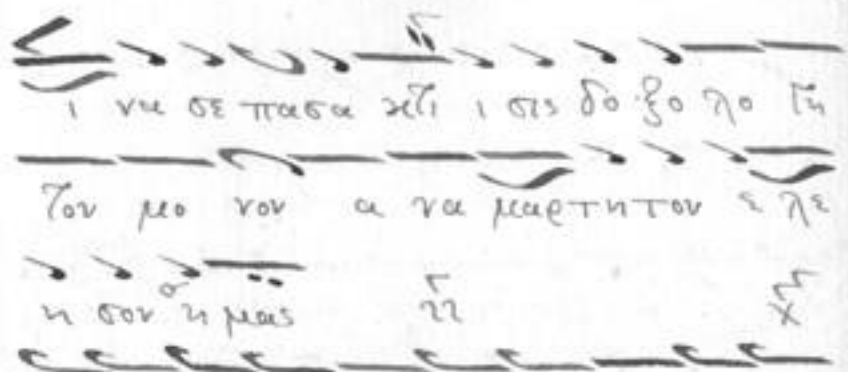 ι να σε πασα κτι ι σις δο ξο λο γη
τον μο νον α να μαρτητον ε λε
η σον η μας